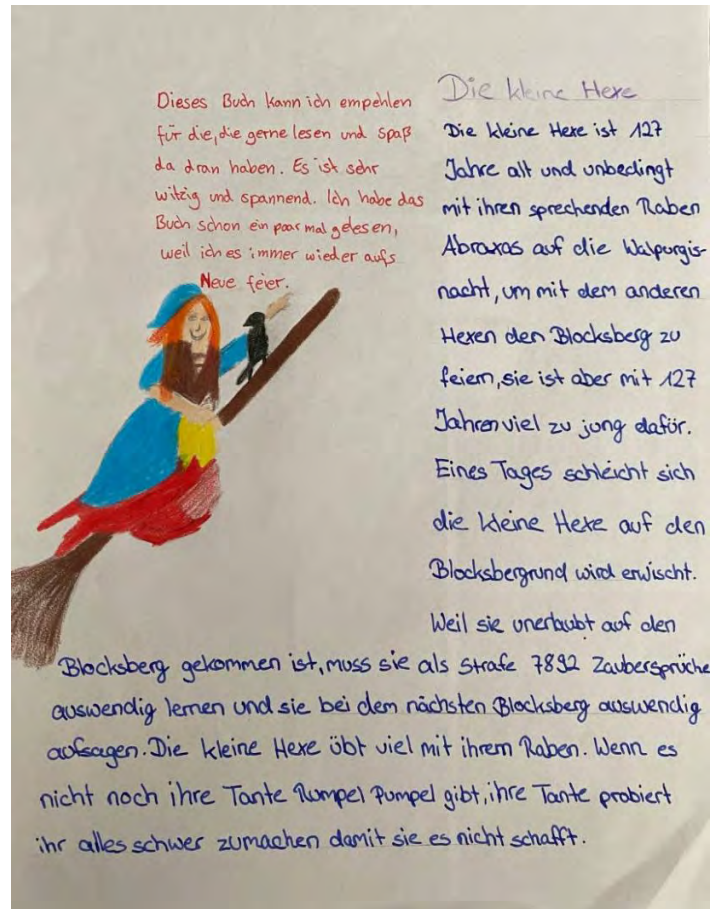 Dieses Buch kann ich empehlen
für die, die gerne lesen und Spaß
da dran haben. Es ist sehr
witzig und spannend. Ich habe das
Buch schon ein paar mal gelesen,
weil ich es immer wieder aufs
Neue feier.
Die kleine Hexe
Die kleine Hexe ist 127
Jahre alt und unbedingt
mit ihren sprechenden Raben
Abraxas auf die Walpurgis-
nacht, um mit dem anderen
Hexen den Blocksberg zu
feiern, sie ist aber mit 127
Jahren viel zu jung dafür.
Eines Tages schleicht sich
die kleine Hexe auf den
Blocksberg und wird erwischt.
Weil sie unerlaubt auf den
Blocksberg gekommen ist, muss sie als Strafe 7892 Zaubersprüche
auswendig lernen und sie bei dem nächsten Blocksberg auswendig
aufsagen. Die kleine Hexe übt viel mit ihrem Raben. Wenn es
nicht noch ihre Tante Rumpel Pumpel gibt, ihre Tante probiert
ihr alles schwer zumachen damit sie es nicht schafft.